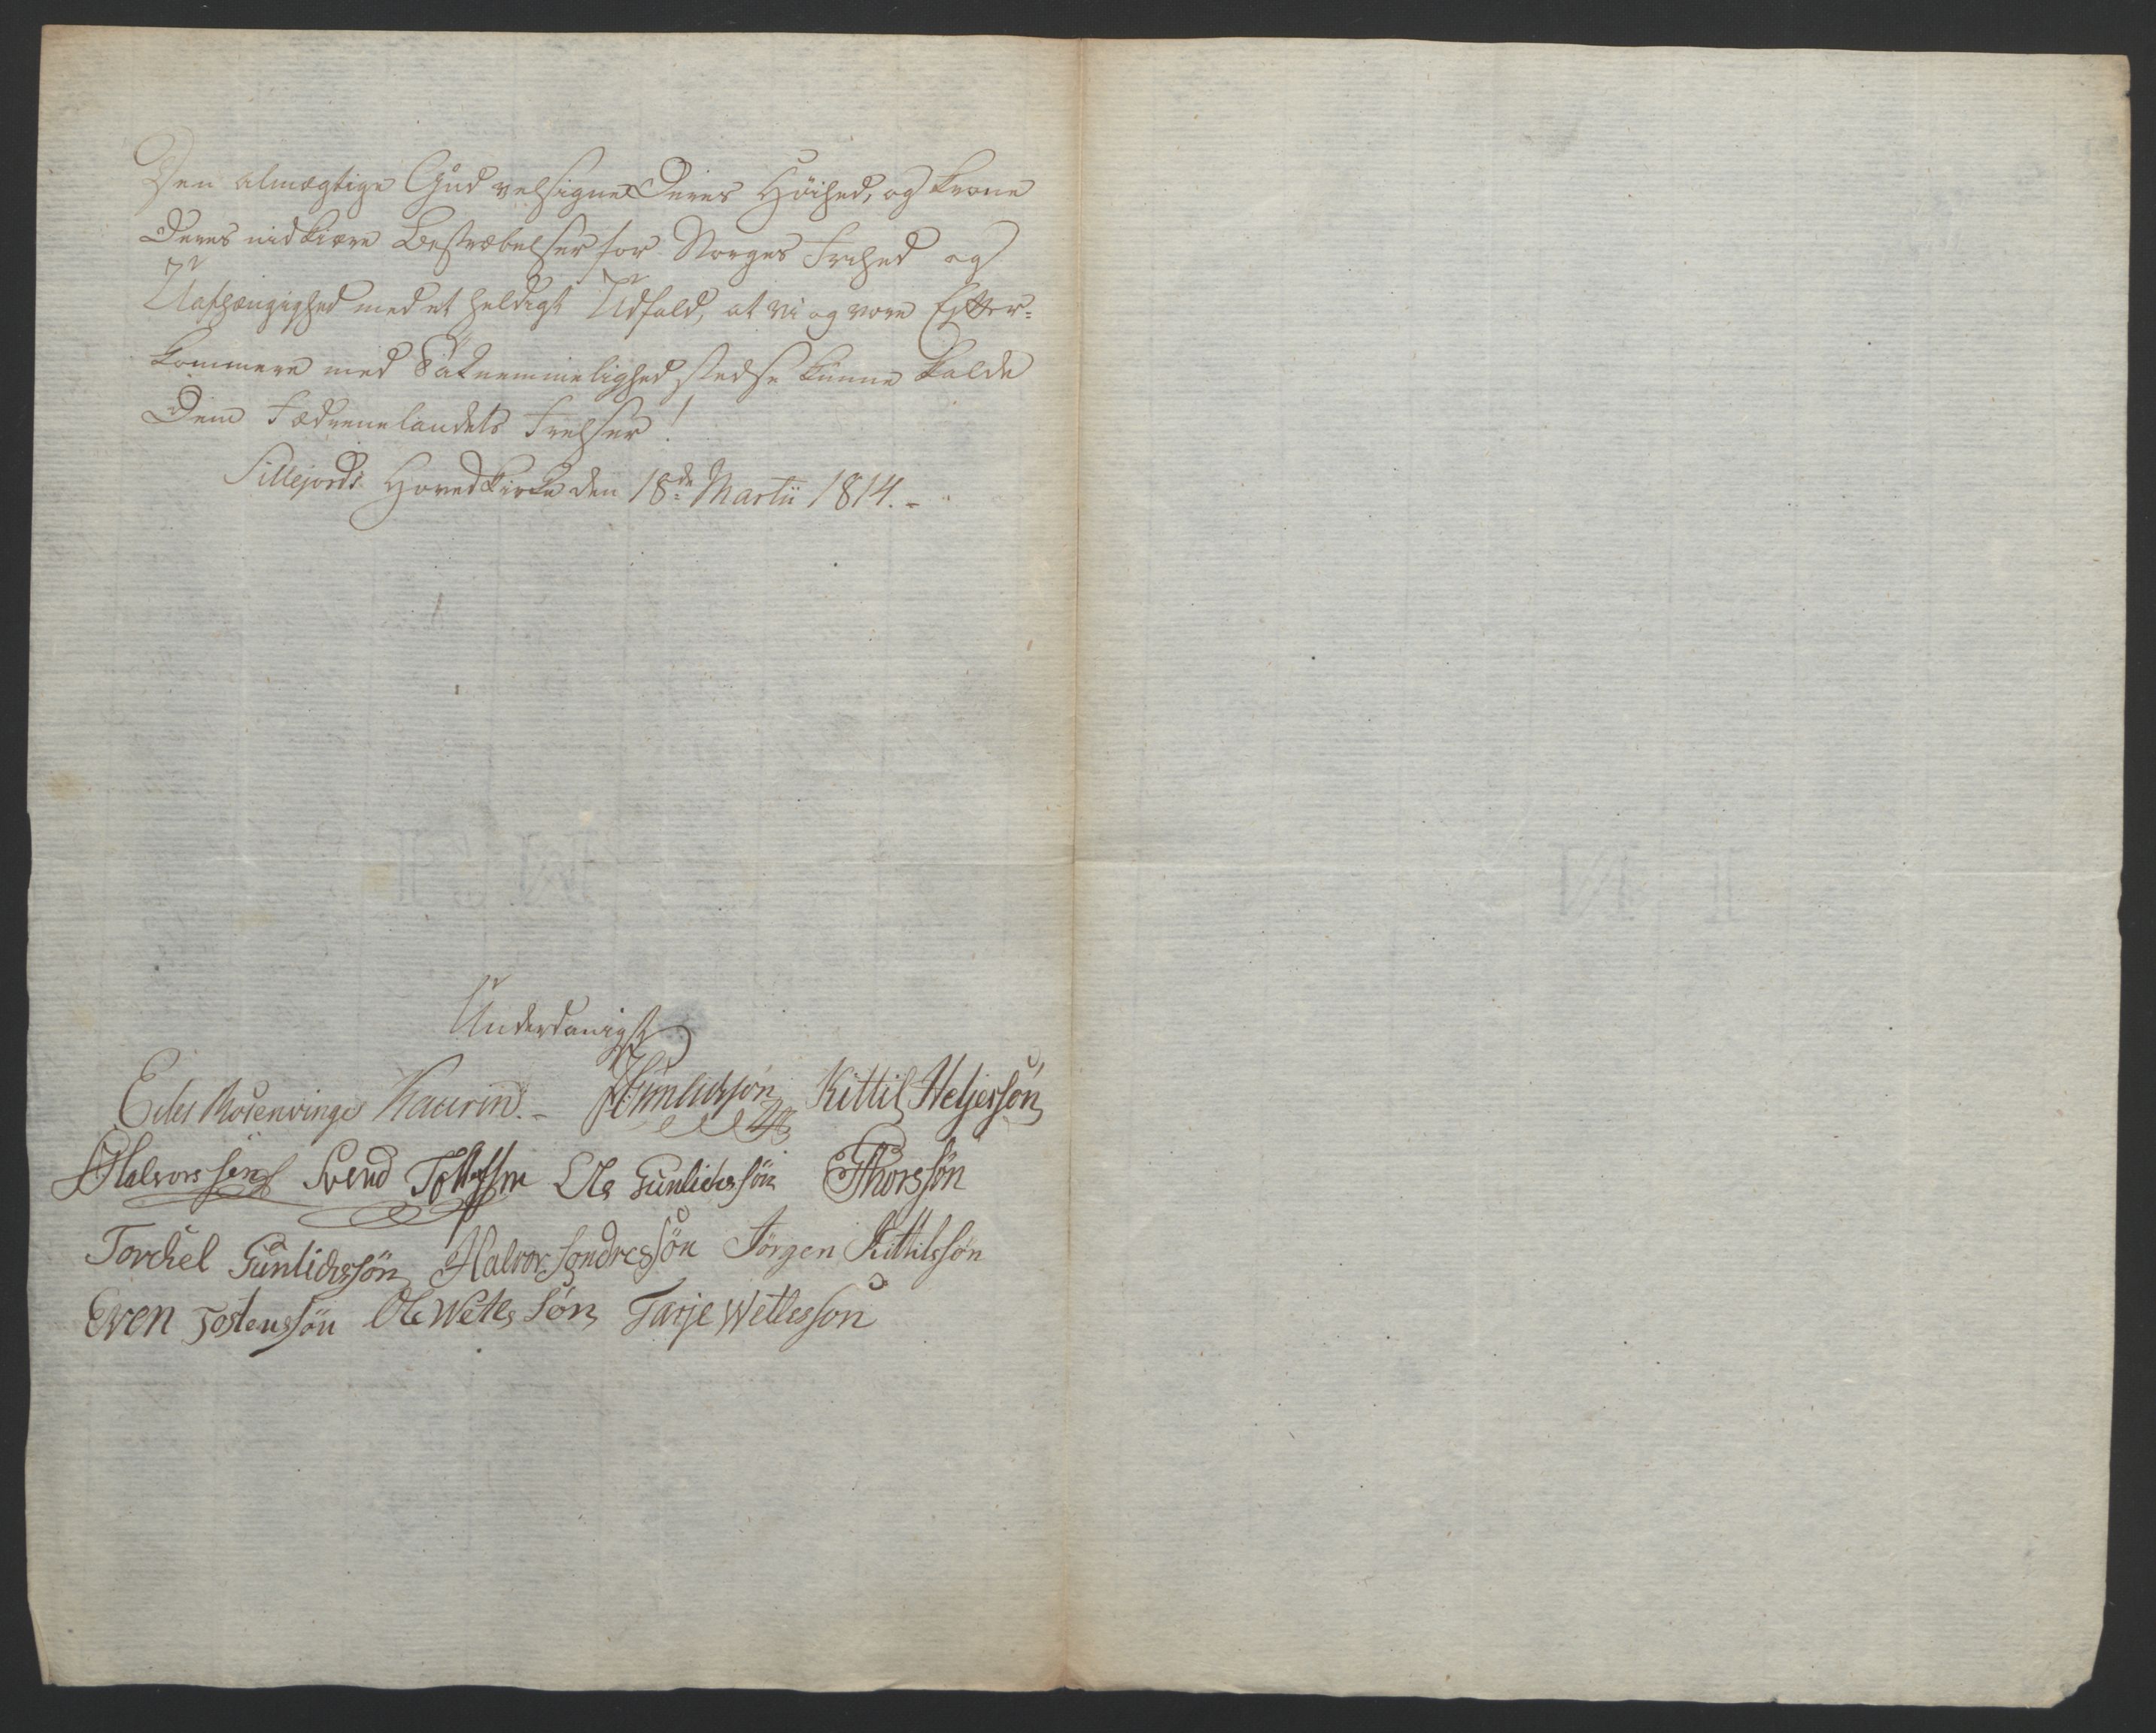 Den almægtige Gud velsigne Deres Höihed, og krone
Deres nidkiære Bestræbelser for Norges Frihed og
Uafhængighed med et heldigt Udfald, at vi og vore Efter=
kommere med Taknemmelighed stedse kunne kalde
Dem Fædrenelandets Frelser!
Sillejords Hovedkirke den 18de Martii 1814.-
Underdanigst
Eiler Rosenvinge Kaurin.- Gunlichsøn Kittil Heljersøn
Halvorssøn Svend Ole Gunlichssön Thorssøn
Torchel Gunlichssøn Halvor Sondresøn Jörgen Kittilssøn
Even Tostenssön Ole Wetles Søn Tarje Wetlessøn